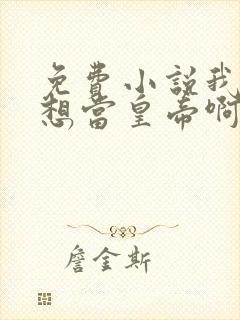 免費小說我
想當皇帝啊
詹金斯